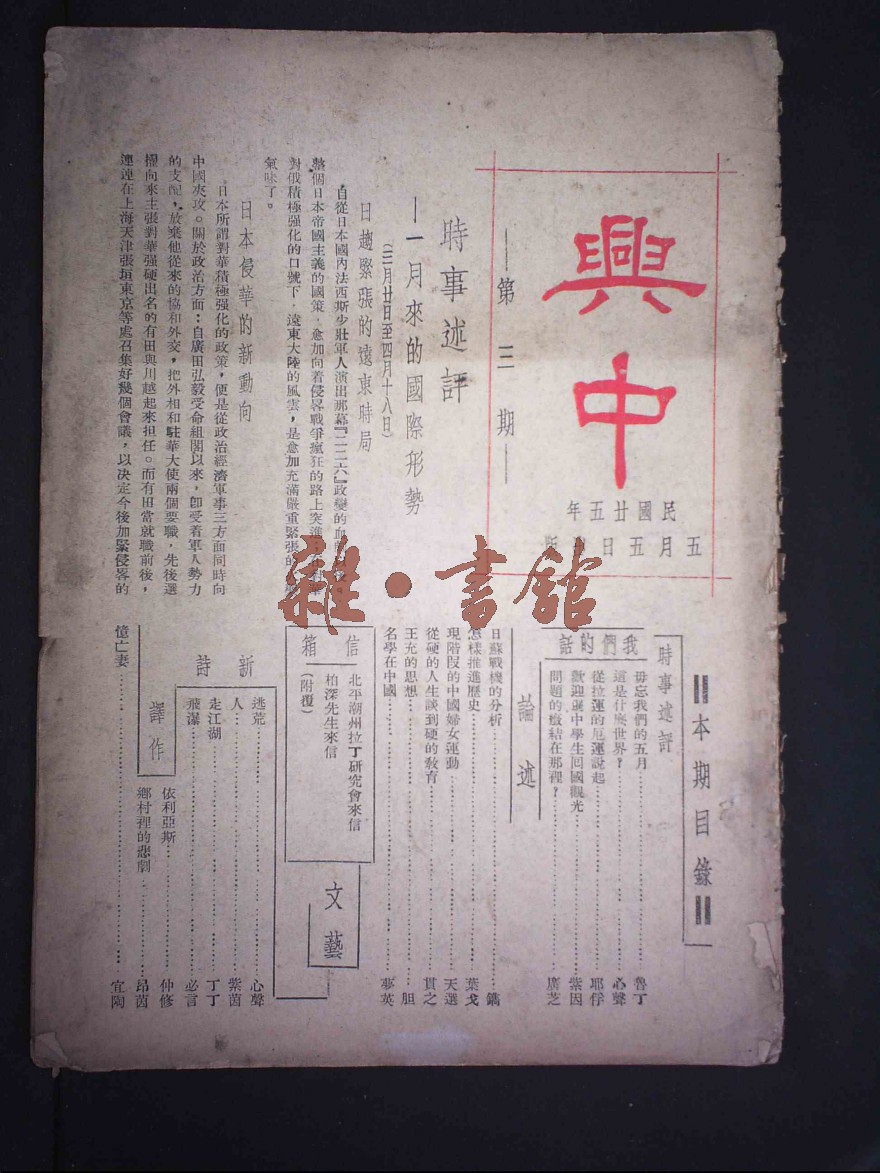 興中
──第三期──
民國廿五年
五月五日
時事述評
──一月來的國際形勢
(三月廿日至四月十八日)
日趨緊張的遠東時局
自從日本國內法西斯少壯軍人演出那幕『二二六』政變的血
整個日本帝國主義的國策,愈加向着侵畧戰爭瘋狂的路上突進
對俄積極强化的口號下,遠東大陸的風雲,是愈加充滿嚴重緊張的
氣味了。
日本侵華的新動向
日本所謂對華積極强化的政策,便是從政治經濟軍事三方面同時向
中國夾攻。關於政治方面:自廣田弘毅受命組閣以來,卽受着軍人勢力
的支配,放棄他從來的協和外交,把外相和駐華大使兩個要職,先後選
擢向來主張對華强硬出名的有田與川越起來担任。而有田當就職前後,
連連在上海天津張垣東京等處召集好幾個會議,以決定今後加緊侵畧的
本期目錄
時事述評
我們的話
毋忘我們的五月……魯丁
這是什麼世界?……心聲
從拉蓮的厄運說起……耶俘
歡迎暹中學生回國觀光……紫因
問題的癥結在那裡?……廣芝
論述
日蘇戰機的分析……鏑
怎樣推進歷史……葉戈
現階段的中國婦女運動……天選
從硬的人生談到硬的教育……貫之
王充的思想……胆
名學在中國……夢英
信箱
北平潮州拉丁研究會來信
柏深先生來信
(附覆)
文藝
新詩
逃荒……心聲
人……紫茵
走江湖……丁丁
飛瀑……必言
譯作
依利亞斯……仲修
鄉村裡的悲劇……昂茵
憶亡妻……宜陶
雜·書舘